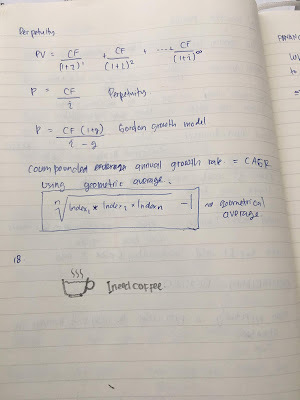 Perpetuity
PV = CF/(1+i)¹ + CF/(1+i)² + ....+ CF/(1+i)^∞
P = CF/i Perpetuity
P = CF (1+g)/i - g Gordon growth model
compounded average annual growth rate = CAGR
using geometric average:
ⁿ√Index₁ * Index₂ * Indexn - 1 → geometrical
average
18.
I need coffee